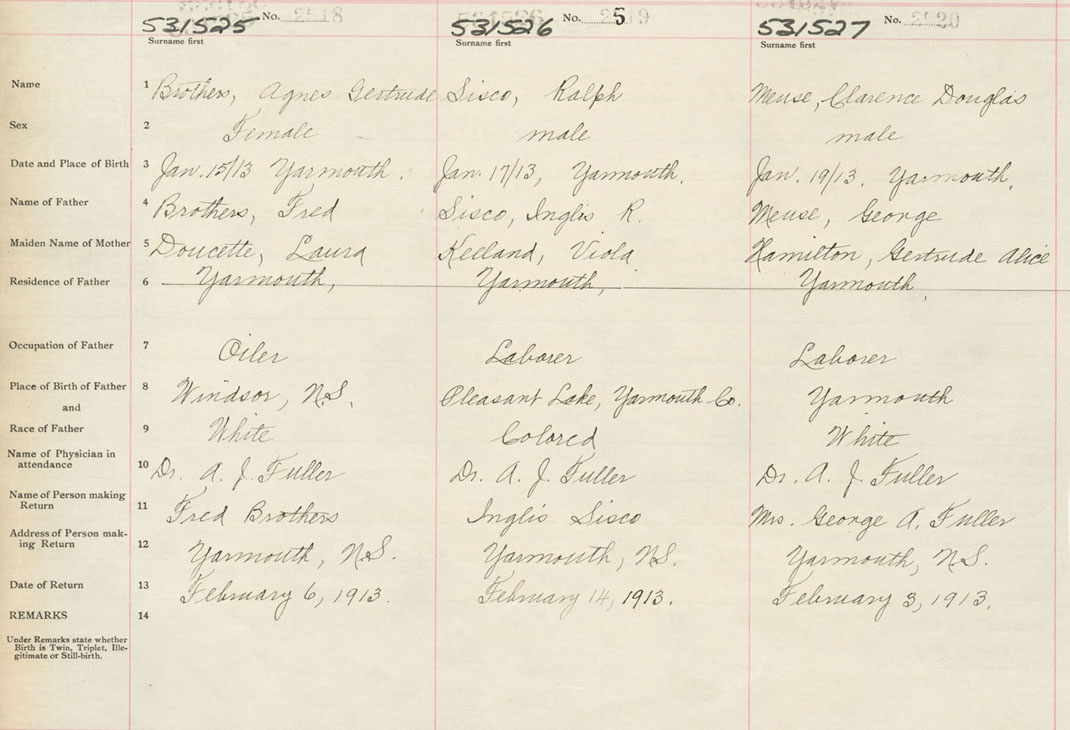 531525 No. 2518 531526 No. 5 531527 No. 2520
Surname first Surname first Surname first
Name 1 Brothers, Agnes Gertrude Sisco, Ralph Meuse, Clarence Douglas
Sex 2 Female male male
Date and Place of Birth 3 Jan. 15/13 Yarmouth. Jan. 17/13, Yarmouth. Jan. 19/13. Yarmouth.
Name of Father 4 Brothers, Fred Sisco, Inglis R. Meuse, George
Maiden Name of Mother 5 Doucette, Laura Keeland, Viola Hamilton, Gertrude Alice
Residence of Father 6 Yarmouth, Yarmouth, Yarmouth,
Occupation of Father 7 Oiler Laborer Laborer
Place of Birth of Father 8 Windsor, N.S. Pleasant Lake, Yarmouth Co. Yarmouth
and
Race of Father 9 White Colored White
Name of Physician in
attendance 10 Dr. A. J. Fuller Dr. A. J. Fuller Dr. A. J. Fuller
Name of Person making
Return 11 Fred Brothers Inglis Sisco Mrs. George A. Fuller
Address of Person mak-
ing Return 12 Yarmouth, N.S. Yarmouth, N.S. Yarmouth, N.S.
Date of Return 13 February 6, 1913. February 14, 1913. February 3, 1913.
REMARKS 14
Under Remarks state whether
Birth is Twin, Triplet, Ille-
gitimate or Still-birth.